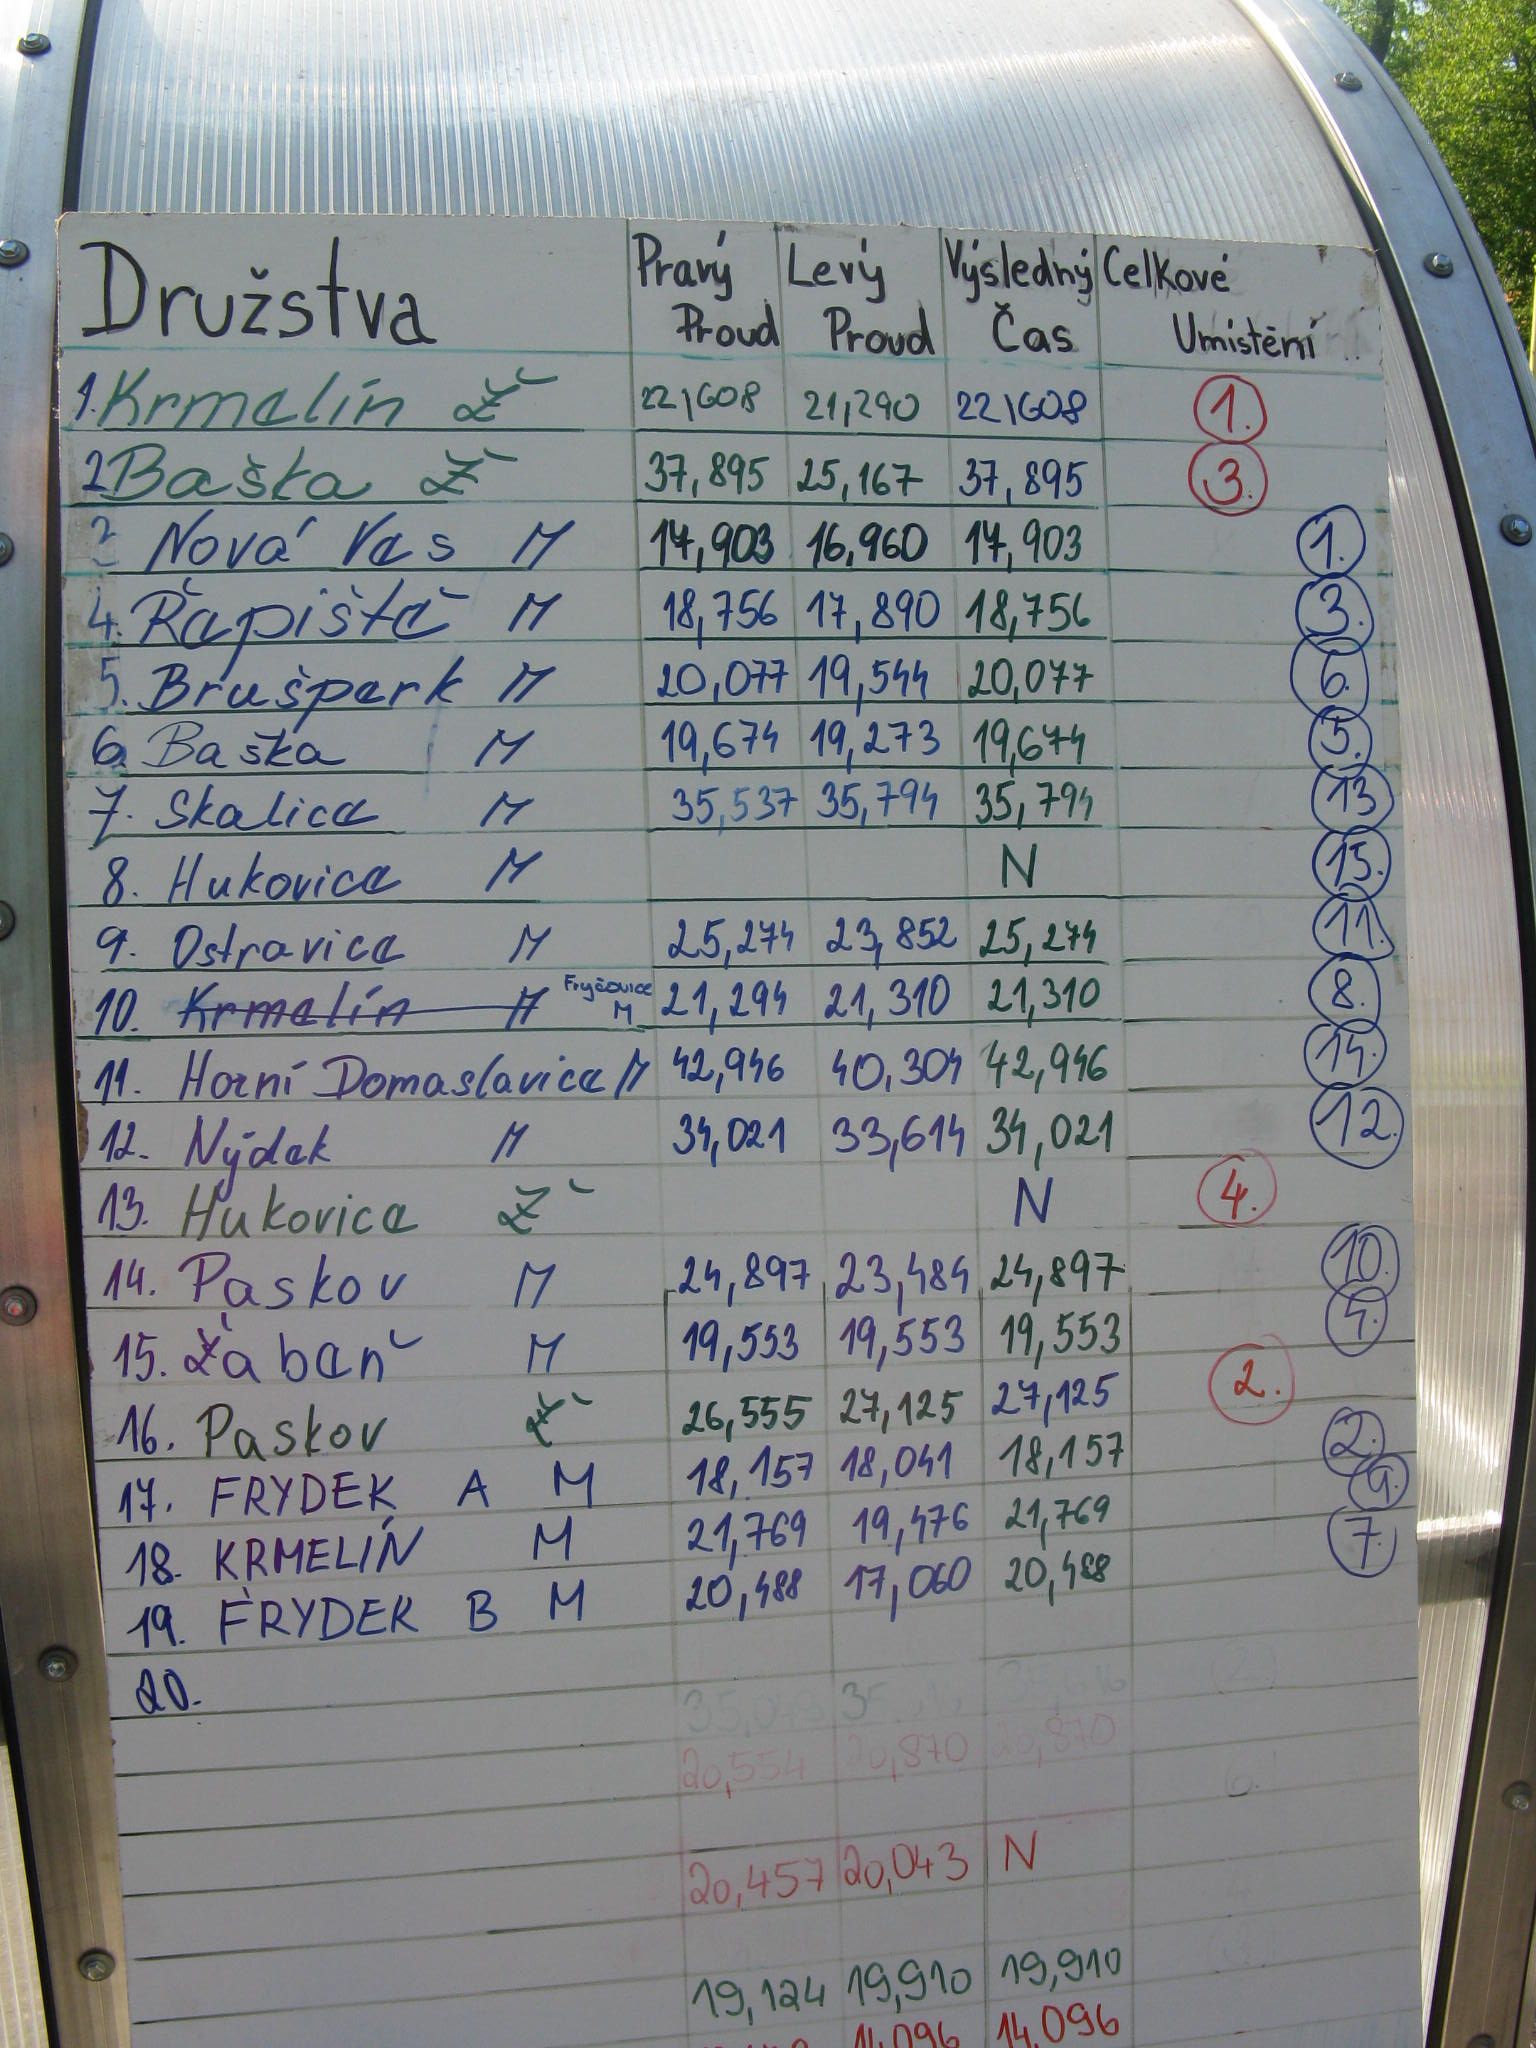 Družstva Pravý Proud Levý Proud Výsledný Čas Celkové Umístění
1. Krmelín Ž 22,608 21,290 22,608 1.
2 Baška Ž 37,895 25,167 37,895 3.
3 Nová Ves M 17,903 16,960 17,903 1.
4. Řepiště M 18,756 17,890 18,756 3.
5. Brušperk M 20,077 19,544 20,077 6.
6. Baška M 19,674 19,273 19,674 5.
7. Skalice M 35,537 35,794 35,794 13
8. Hukovice M N 15.
9. Ostravice M 25,274 23,852 25,274 11.
10. Krmelín M Fryčovice M 21,294 21,310 21,310 8.
11. Horní Domaslavice M 42,946 40,304 42,946 14.
12. Nýdek M 34,021 33,614 34,021 12.
13. Hukovice Ž N 4.
14. Paskov M 24,897 23,484 24,897 10.
15. Žabeň M 19,553 19,553 19,553 4.
16. Paskov Ž 26,555 27,125 27,125 2.
17. FRYDEK A M 18,157 18,041 18,157 2.
18. KRMELÍN M 21,769 19,476 21,769 9.
19. FRYDEK B M 20,488 17,060 20,488 7.
20.
20,554 20,870 20,870
20,457 20,043 N
19,124 19,910 19,910
14,096 14,096